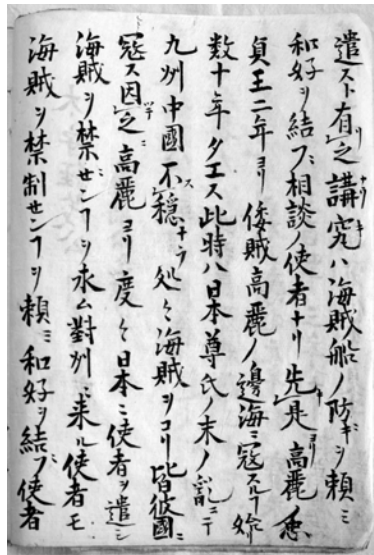 遣スト有リ之講究ハ海賊船ノ防ギヲ頼ミ
和好ヲ結ブ相談ノ使者ナリ先是ヨリ高麗忠
貞王二年ヨリ倭賊高麗ノ邊海ニ寇スルヿ
数十年タエス此時ハ日本尊氏ノ末ノ乱ニテ
九州中國不穏ナラス処々海賊ヲコリ皆彼國ニ
寇ス因テ之ニ高麗ヨリ度々日本ニ使者ヲ遣シ
海賊ヲ禁センヿヲ求ム對州ニ来ル使者モ
海賊ヲ禁制センヿヲ頼ミ和好ヲ結ブ使者